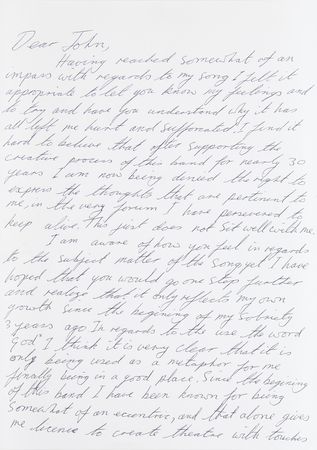 Dear John,
Having reached somewhat of an
impass with regards to my song I felt it
appropriate to let you know my feelings and
to try and have you understand why it has
all left me hurt and suffonated. I find it
hard to believe that after supporting the
creative process of this band for nearly 30
years I am now being denied the right to
express the thoughts that are pertinent to
me, in the very forum I have persevered to
keep alive. This just does not sit well with me.
I am aware of how you feel in regards
to the subject matter of the song, yet I have
hoped that you would go one step further
and realize that it only reflects my own
growth since the begining of my sobriety
3 years ago In regards to the use the word
God I think it is very clear that it is
only being used as a metaphor for me
finally being in a good place. Since the begining
of this band I have been known for being
somewhat of an eccentric, and that alone gives
me licence to create theatre with touches